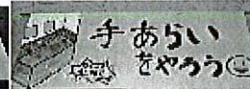 手あらい
をやろう